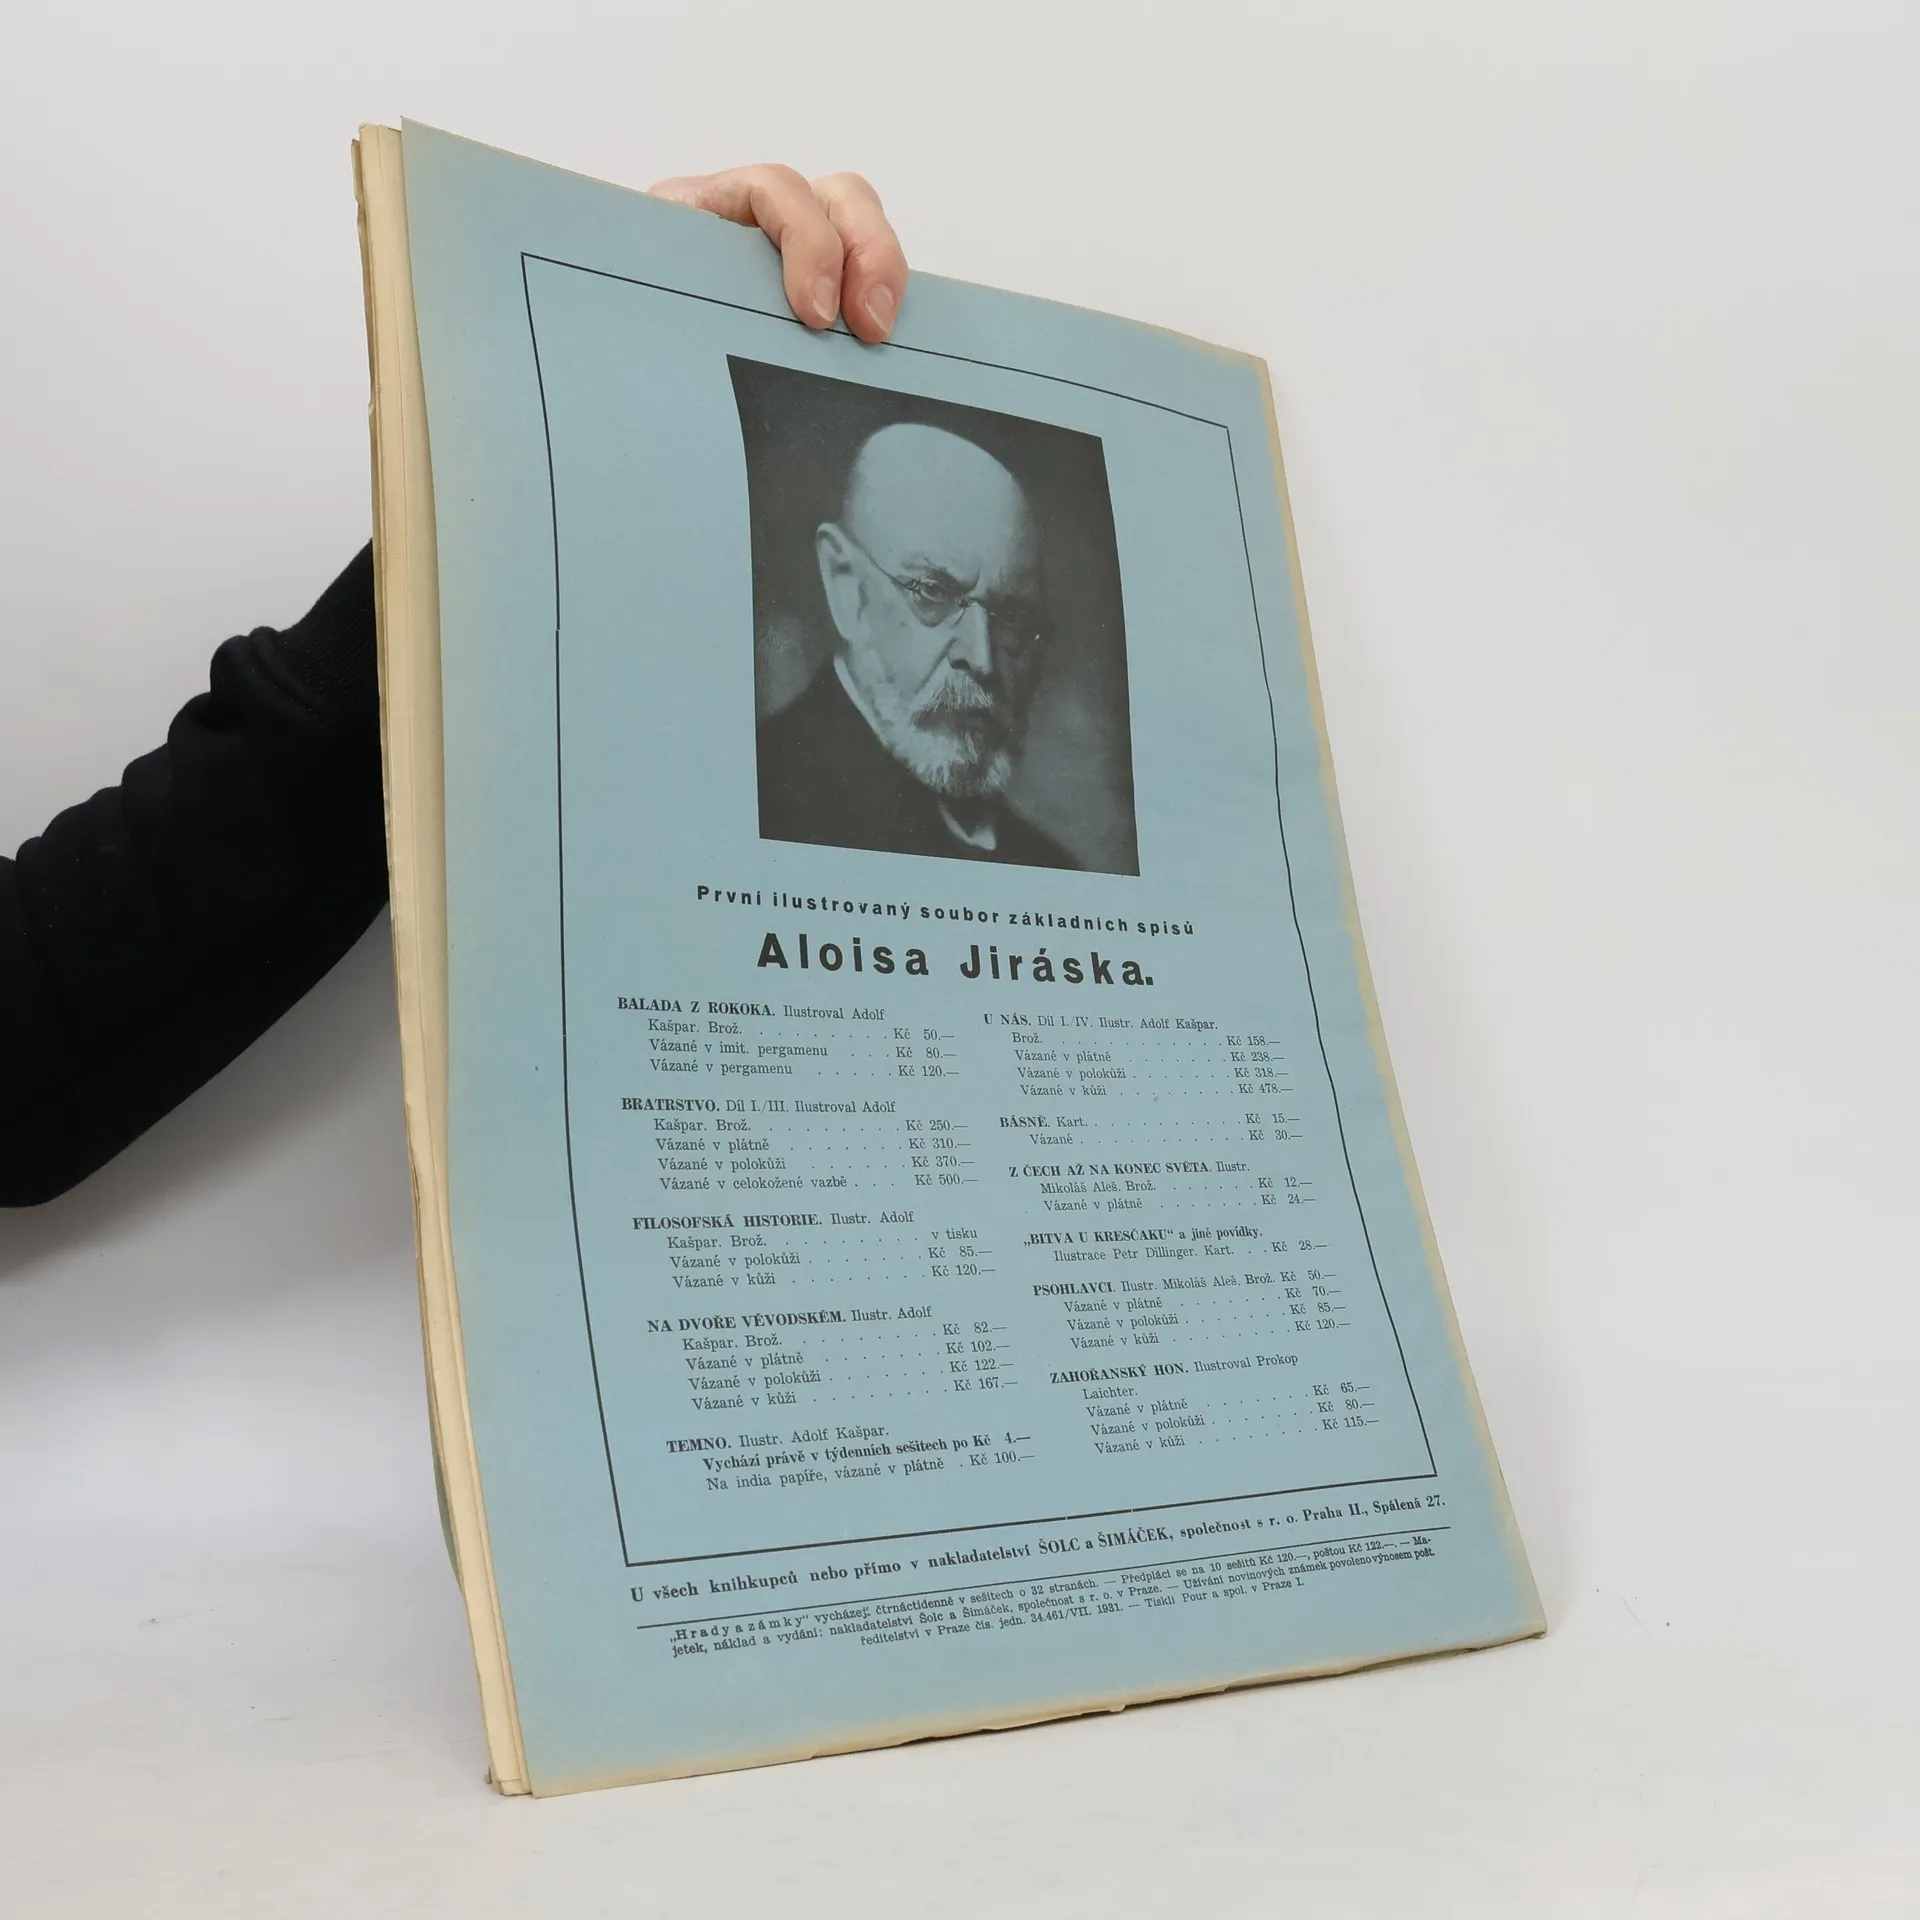 První ilustrovaný soubor základních spisů
Aloisa Jiráska.
BALADA Z ROKOKA. Ilustroval Adolf
Kašpar. Brož. . . . . . . . . Kč 50.—
Vázané v imit. pergamenu . . . Kč 80.—
Vázané v pergamenu . . . . . Kč 120.—
BRATRSTVO. Díl I./III. Ilustroval Adolf
Kašpar. Brož. . . . . . . . . Kč 250.—
Vázané v plátně . . . . . . . Kč 310.—
Vázané v polokůži . . . . . . Kč 370.—
Vázané v celokožené vazbě . . . Kč 500.—
FILOSOFSKÁ HISTORIE. Ilustr. Adolf
Kašpar. Brož. . . . . . . . . v tisku
Vázané v polokůži . . . . . . . Kč 85.—
Vázané v kůži . . . . . . . . Kč 120.—
NA DVOŘE VÉVODSKÉM. Ilustr. Adolf
Kašpar. Brož. . . . . . . . . Kč 82.—
Vázané v plátně . . . . . . . Kč 102.—
Vázané v polokůži . . . . . . . Kč 122.—
Vázané v kůži . . . . . . . . Kč 167.—
TEMNO. Ilustr. Adolf Kašpar.
Vychází právě v týdenních sešitech po Kč 4.—
Na india papíře, vázané v plátně . Kč 100.—
U NÁS. Díl I./IV. Ilustr. Adolf Kašpar.
Brož. . . . . . . . . . . . Kč 158.—
Vázané v plátně . . . . . . . Kč 238.—
Vázané v polokůži . . . . . . . Kč 318.—
Vázané v kůži . . . . . . . . Kč 478.—
BÁSNĚ. Kart. . . . . . . . . . . Kč 15.—
Vázané . . . . . . . . . . . Kč 30.—
Z ČECH AŽ NA KONEC SVĚTA. Ilustr.
Mikoláš Aleš. Brož. . . . . . . Kč 12.—
Vázané v plátně . . . . . . . Kč 24.—
„BITVA U KRESČAKU“ a jiné povídky.
Ilustrace Petr Dillinger. Kart. . . Kč 28.—
PSOHLAVCI. Ilustr. Mikoláš Aleš. Brož. Kč 50.—
Vázané v plátně . . . . . . . Kč 70.—
Vázané v polokůži . . . . . . . Kč 85.—
Vázané v kůži . . . . . . . . Kč 120.—
ZAHOŘANSKÝ HON. Ilustroval Prokop
Laichter.
Vázané v plátně . . . . . . . Kč 65.—
Vázané v polokůži . . . . . . . Kč 80.—
Vázané v kůži . . . . . . . . Kč 115.—
U všech knihkupců nebo přímo v nakladatelství ŠOLC a ŠIMÁČEK, společnost s r. o. Praha II., Spálená 27.
„Hrady a zámky“ vycházejí čtrnáctidenně v sešitech o 32 stranách. — Předplácí se na 10 sešitů Kč 120.—, poštou Kč 122.—. — Ma-
jetek, náklad a vydání: nakladatelství Šolc a Šimáček, společnost s r. o. v Praze. — Užívání novinových známek povoleno výnosem pošt.
ředitelství v Praze čís. jedn. 34.461/VII. 1931. — Tiskli Pour a spol. v Praze I.